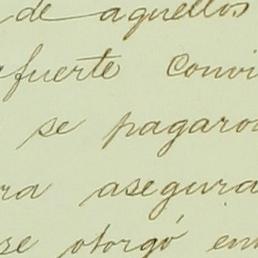 de aquellos
efuerte convi
se pagaro
ra asegura
se otorgó en